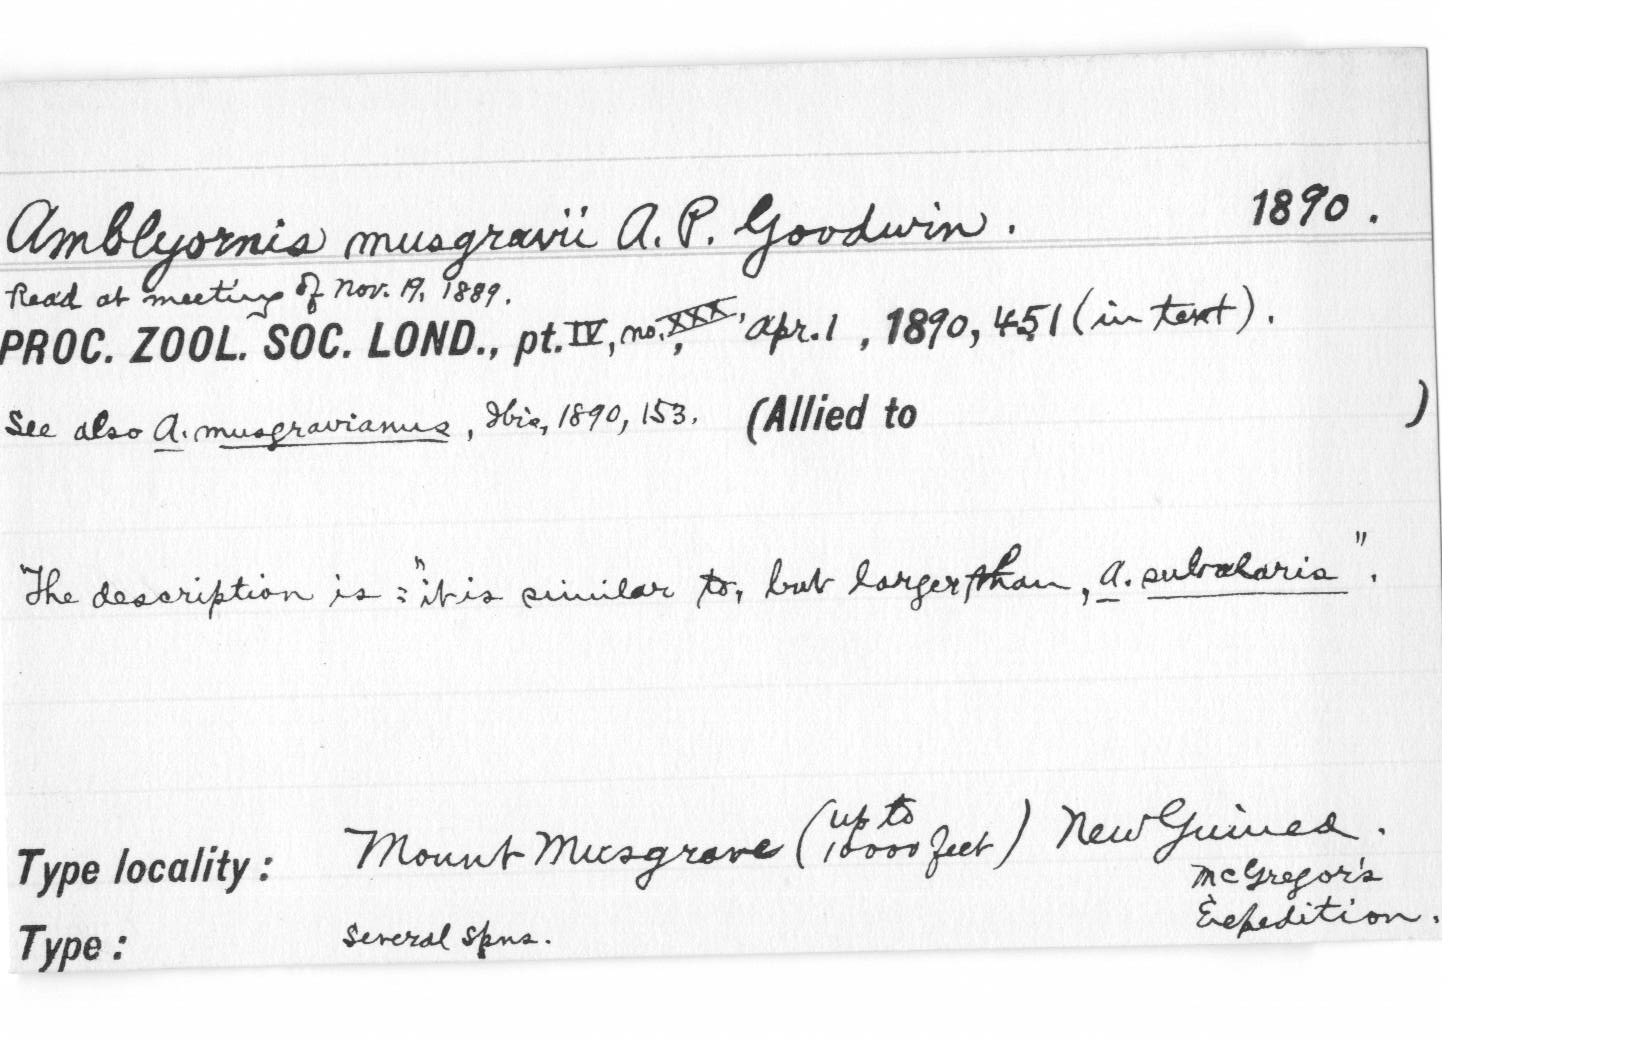 Amblyornis musgravii A. P. Goodwin. 1890.
Read at meeting of Nov. 19, 1889.
PROC. ZOOL. SOC. LOND., pt. IV, no. XXX, Apr. 1, 1890, 451 (in text).
See also A. musgravianus, Ibis, 1890, 153. (Allied to )
The description is: "it is similar to, but larger than, A. subalaris".
Type locality: Mount Musgrave (up to 10000 feet) New Guinea.
McGregor's
Expedition.
Type: Several spns.